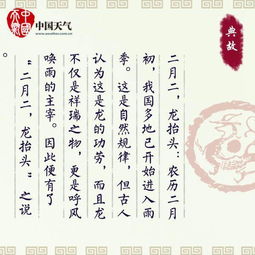 中国天气
www.weather.com.cn
典故
二月二，龙抬头：农历二月
初，我国多地已开始进入雨
季。这是自然规律，但古人
认为这是龙的功劳，而且龙
不仅是祥瑞之物，更是呼风
唤雨的主宰。因此便有了
“二月二，龙抬头”之说
。